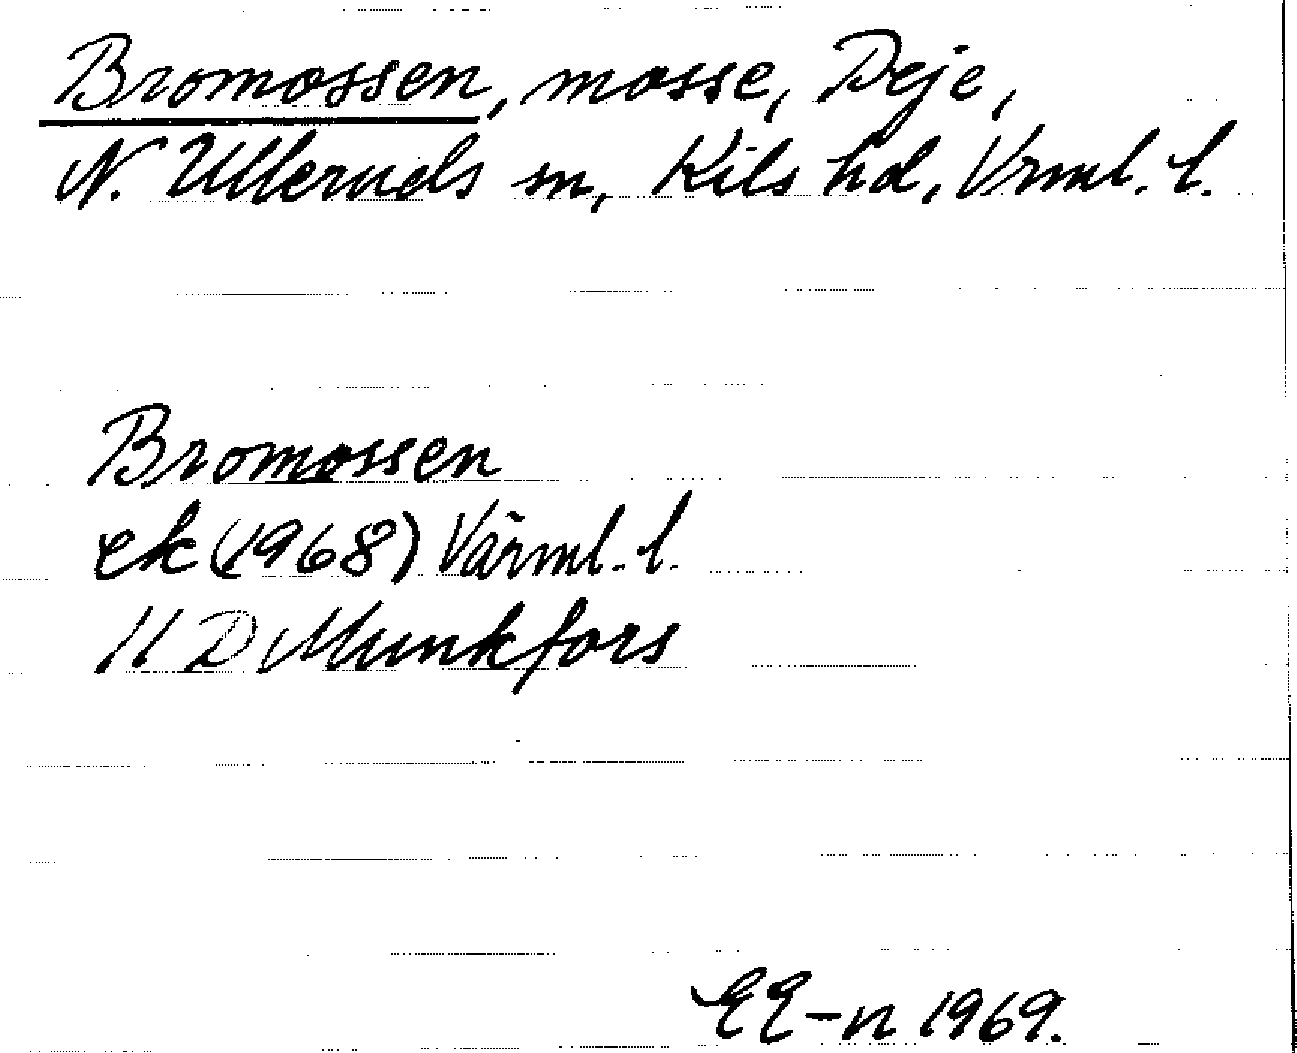 Bromossen, mosse, Deje,
N. Ulleruds sn, Kils hd, Vrml. l.
Bromossen
ek (1968) Värml. l.
11 D Munkfors
EE-n 1969.